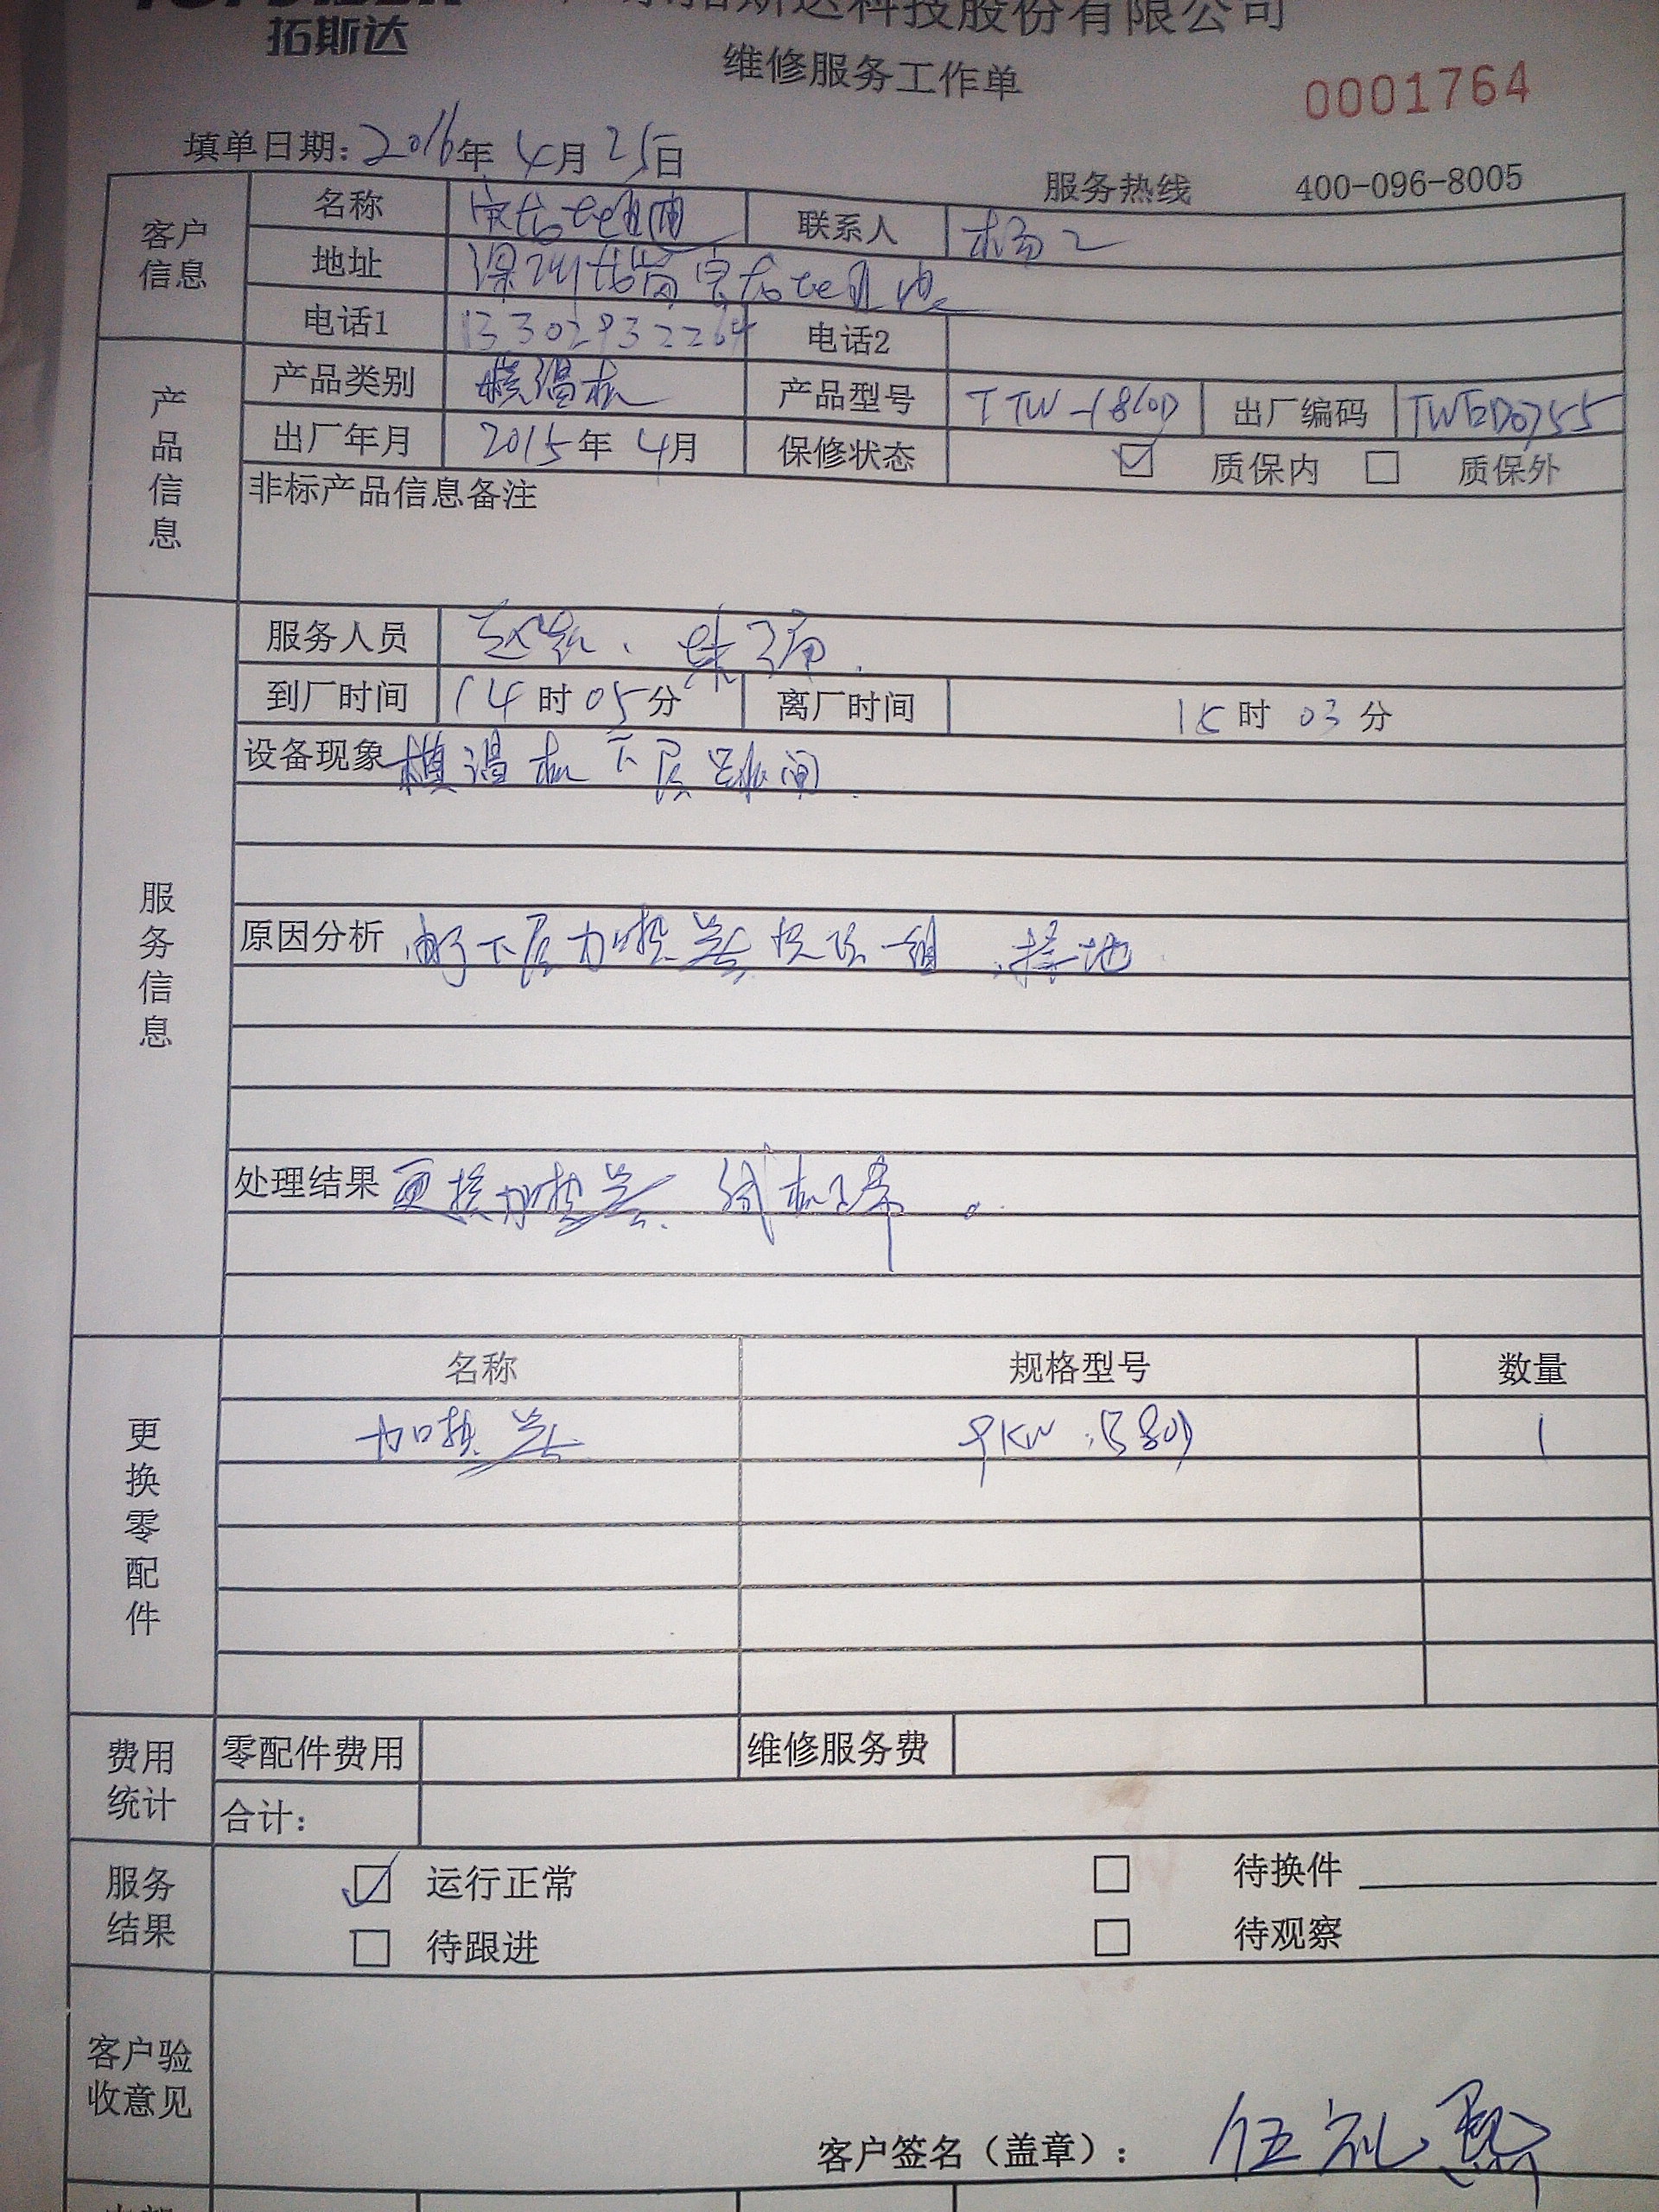 拓斯达
科技股份有限公司
维修服务工作单
0001764
填单日期：2016年 4月 25日
服务热线 400-096-8005
客户信息
名称 联系人 杨工
地址 深圳龙岗
电话1 13302932264 电话2
产品信息
产品类别 模温机 产品型号 TTW-1860D 出厂编码
出厂年月 2015年 4月 保修状态 ☑ 质保内 □ 质保外
非标产品信息备注
服务信息
服务人员
到厂时间 14时 05分 离厂时间 15时 03分
设备现象 模温机下层跳闸.
原因分析 由于下层加热器 一组 接地
处理结果 更换加热器. 试机正常。
更换零配件
名称 规格型号 数量
加热器 9KW 1
费用统计
零配件费用 维修服务费
合计：
服务结果
☑ 运行正常 □ 待换件
□ 待跟进 □ 待观察
客户验收意见
客户签名（盖章）： 伍礼